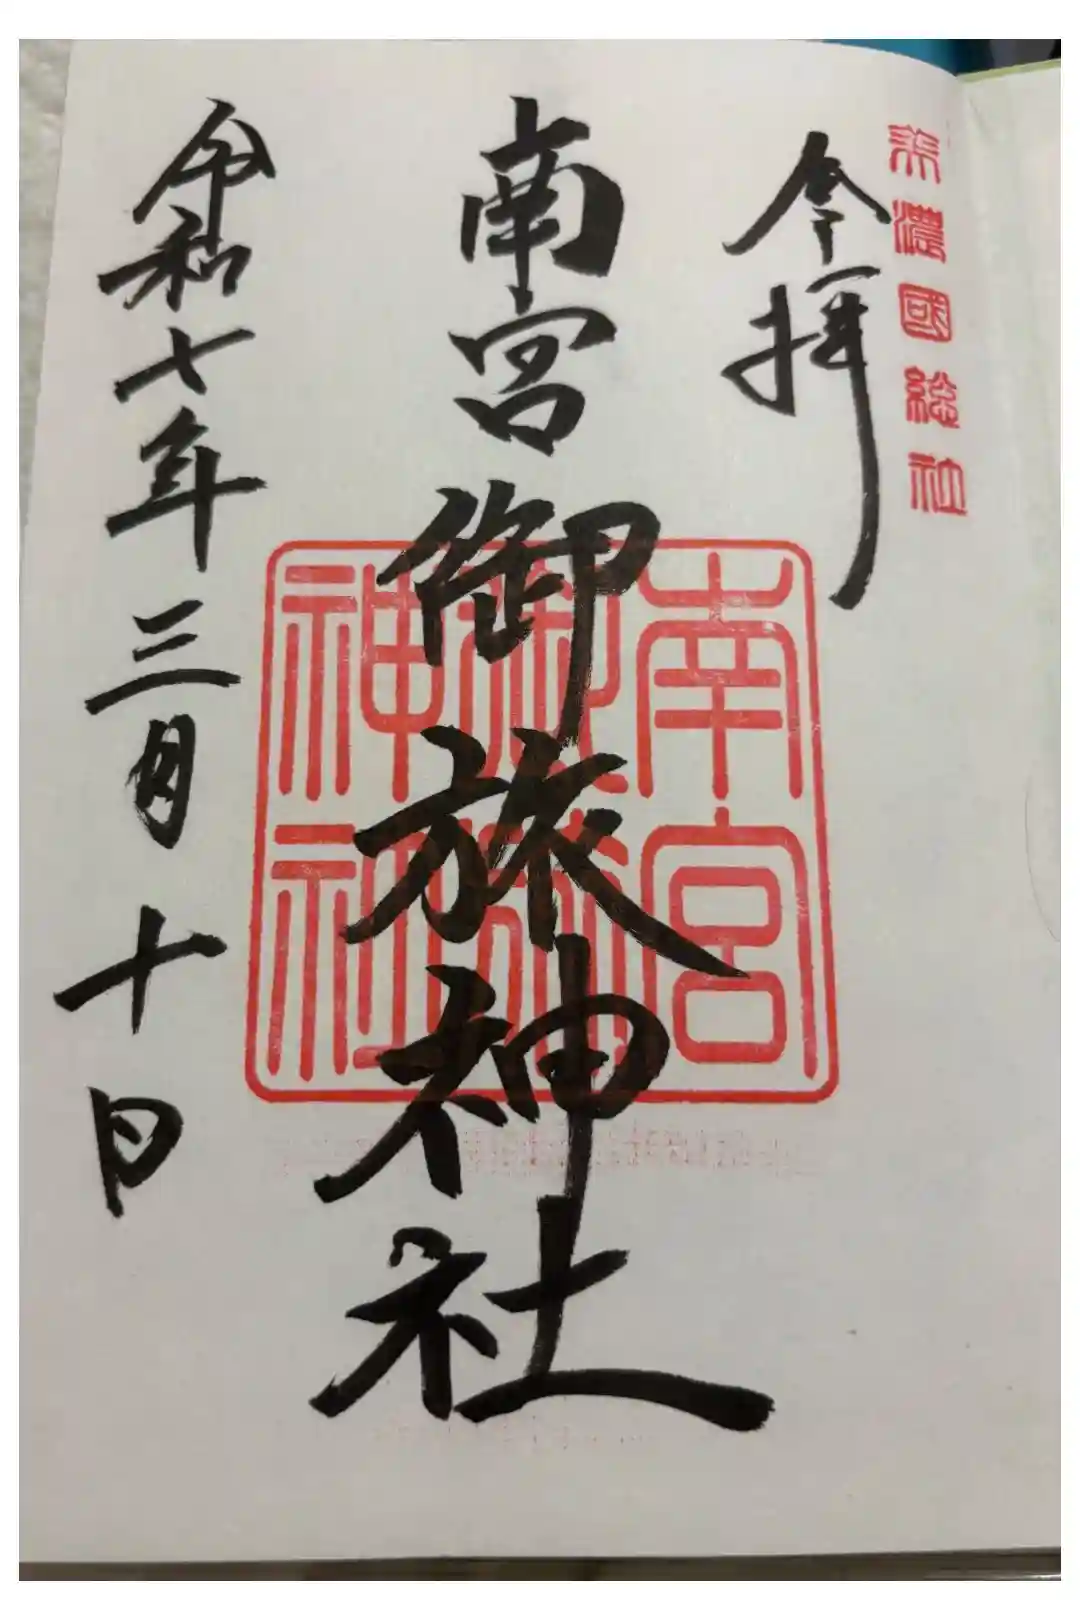 美濃國総社
奉拝
南宮御旅神社
令和七年三月十日
南宮
御旅
神社